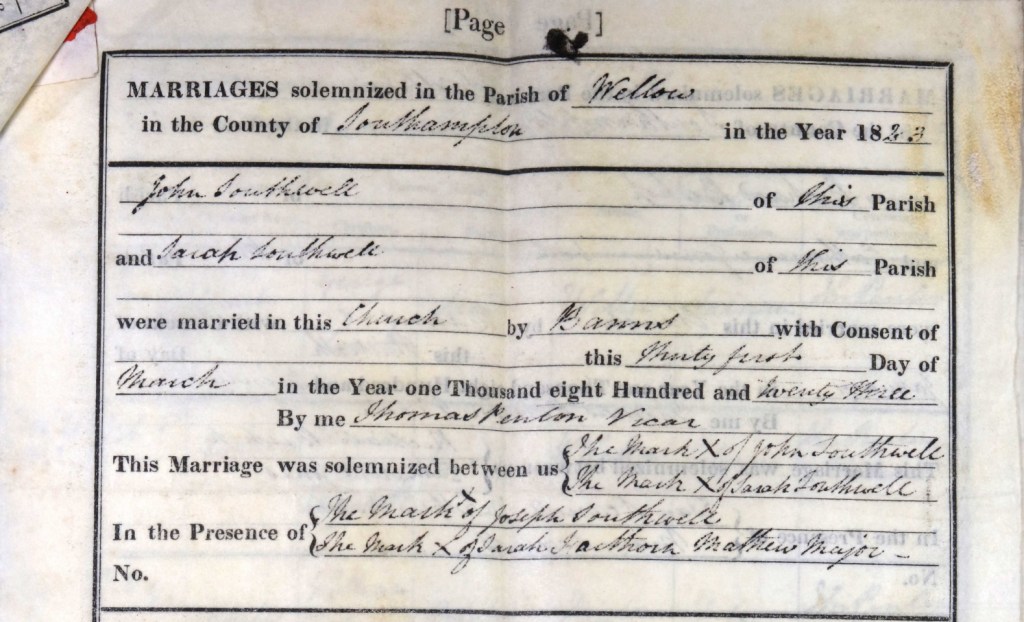 [Page ]
MARRIAGES solemnized in the Parish of Wellow
in the County of Southampton in the Year 1823
John Southwell of this Parish
and Sarah Southwell of this Parish
were married in this Church by Banns with Consent of
this Thirty first Day of
March in the Year one Thousand eight Hundred and twenty three
By me Thomas Penton Vicar
This Marriage was solemnized between us { The Mark X of John Southwell
The Mark X of Sarah Southwell
In the Presence of { The Mark X of Joseph Southwell
The Mark X of Sarah Mathew Major
No.